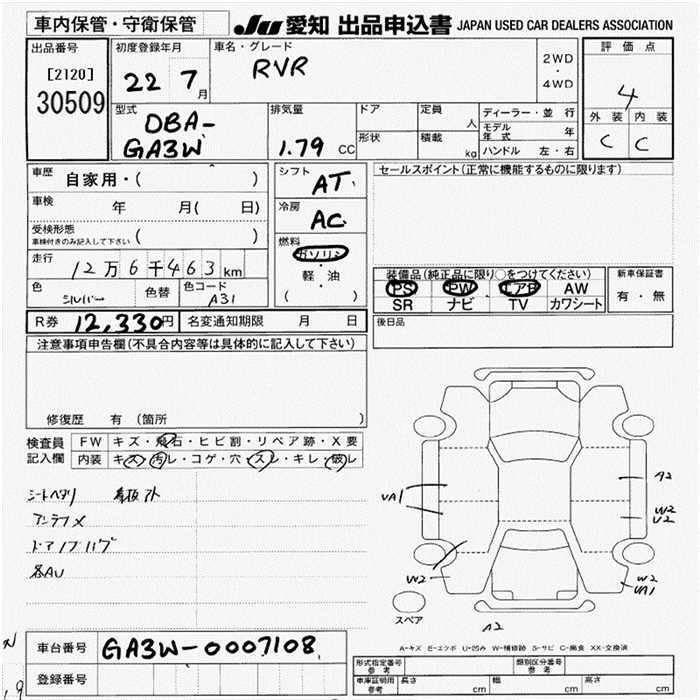 車内保管・守衛保管
JU 愛知 出品申込書 JAPAN USED CAR DEALERS ASSOCIATION
出品番号
[2120]
30509
初度登録年月
22 7月
車名・グレード
RVR
2WD
・
4WD
評価点
4
外装 内装
C C
型式
DBA-
GA3W
排気量
1.79 CC
ドア
形状
定員
人
積載
kg
ディーラー・並行
モデル年式 年
ハンドル 左・右
車歴 自家用・( )
車検 年 月( 日)
受検形態
車検付きのみ記入して下さい ( )
走行
12万6千463km
色
シルバー
色替
色コード
A31
シフト
AT
冷房
AC
燃料
ガソリン
・
軽・油
( )
セールスポイント(正常に機能するものに限ります)
装備品(純正品に限り○をつけてください)
PS PW エアB AW
SR ナビ TV カワシート
新車保証書
有・無
R券 12,330円 名変通知期限 月 日
後日品
注意事項申告欄(不具合内容等は具体的に記入して下さい)
修復歴 有 (箇所 )
検査員
記入欄
FW キズ・飛石・ヒビ割・リペア跡・X要
内装 キズ・汚レ・コゲ・穴・スレ・キレ・破レ
シートヘタリ 看板アト
アンテラメ
ドアノブハゲ
各AU
UA1
A2
W2
U2
W2
W2
UA1
スペア
A2
A-キズ E-エクボ U-凹み W-補修跡 S-サビ C-腐食 XX-交換済
車台番号 GA3W-0007108
登録番号
形式指定番号
参考
類別区分番号
参考
車庫証明用
参考
長さ cm 幅 cm 高さ cm